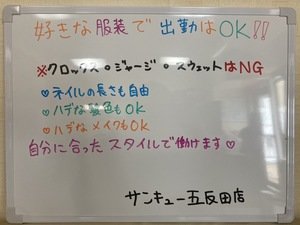 好きな服装で出勤はOK!!
※クロックス・ジャージ・スウェットはNG
♡ネイルの長さも自由
♡ハデな髪色もOK
♡ハデなメイクもOK
自分に合ったスタイルで働けます♡
サンキュー五反田店